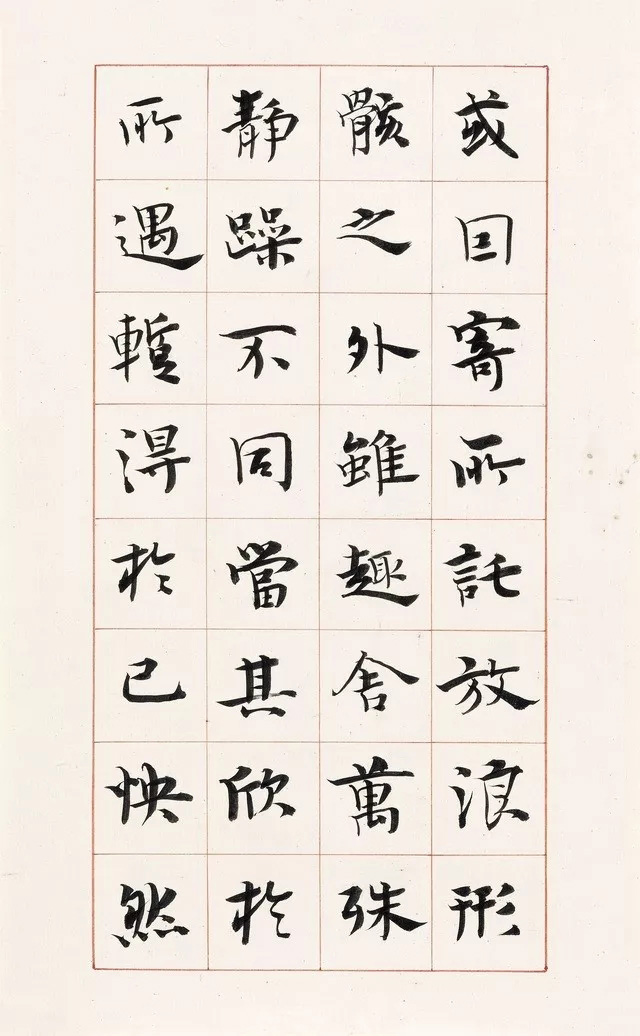 或因寄所託放浪形
骸之外雖趣舍萬殊
靜躁不同當其欣於
所遇暫得於己怏然